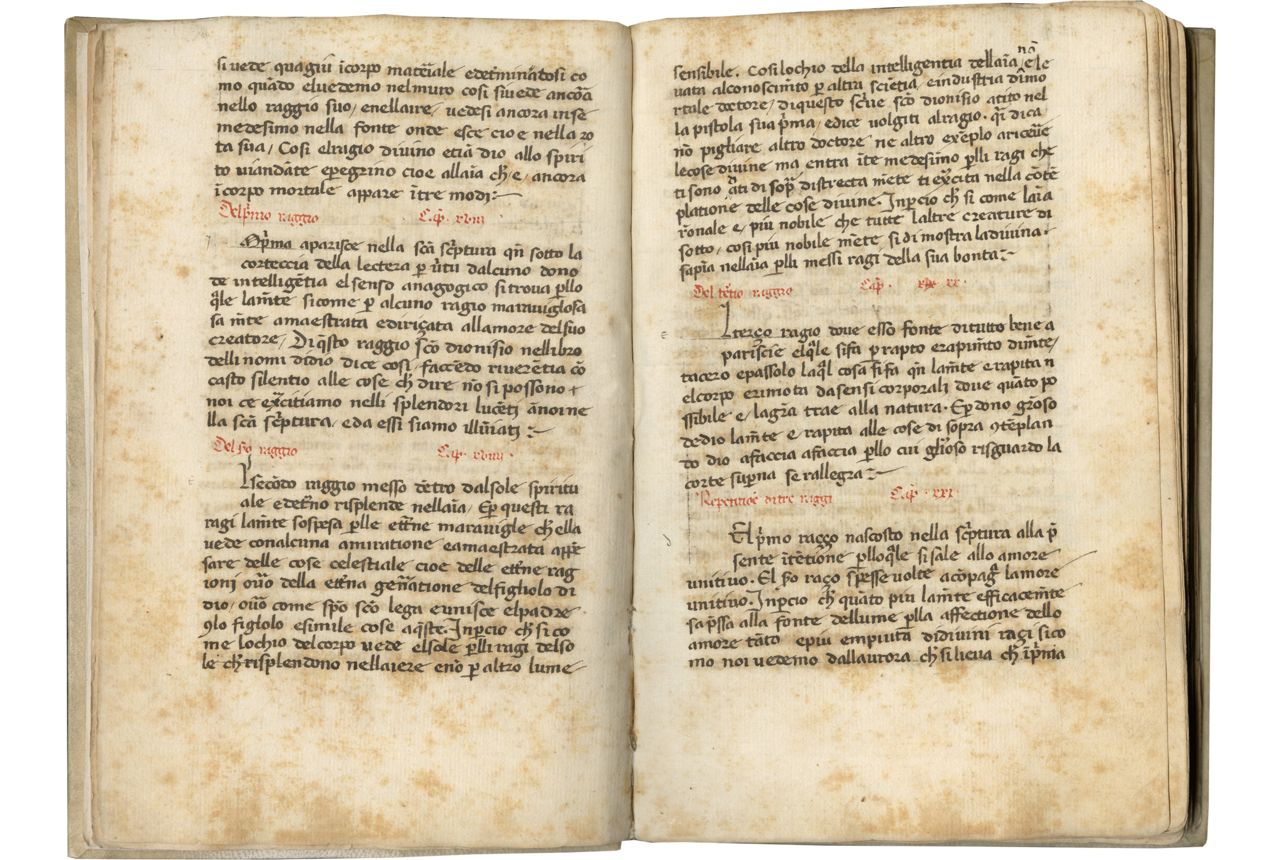 si vede quagiu ĩcorpo mateĩale edetminãtosi co
mo quãdo eluedemo nelmuro cosi siuede ancorã
nello raggio suo, enellaire, uedesi ancora inse
medesimo nella fonte onde esce cioe nella ro
ta sua, Cosi elragio diuino etiã dio allo spiri
to uiandãte eperegrino cioe allaĩa ch̃ e, ancora
ĩcorpo mortale appare ĩtre modi:~
Delp̃mo raggio Cap̃. xviii.
Np̃ma aparisce nella sc̃a sc̃ptura qñ sotto la
corteccia della lectera ꝑ ũtu dalcuno dono
de intelligẽtia elsenso anagogico si troua ꝑllo
q̃le lam̃te sicome ꝑ alcuno ragio marauiglosa
sa m̃te amaestrata ediriçata allamore delsuo
creatore, Di q̃sto raggio sc̃o dionisio nellibro
delli nomi didio dice cosi, faccẽdo riuerẽtia cõ
casto silentio alle cose ch̃ dire nõ si possono
noi ce exc̃itiamo nelli splendori lucẽti ãnoi ne
lla sc̃a sc̃ptura, eda essi siamo illũiati:~
Del so raggio Cap̃. xviiii.
Lsecõdo raggio messo dẽtro dalsole spiritu
ale edet̃no risplende nellaĩa, Eꝑ questi ra
ragi lam̃te sospesa ꝑlle etẽne marauigle ch̃ ella
uede conalcuna amiratione eamaestrata app̃e
sare delle cose celestiale cioe delle etẽne rag
ioni ouõ della etẽna geñatione delfigholo di
dio, ouõ come sp̃o sc̃o lega eunisce elpadre
ꝯlo figlolo esimile cose aq̃ste. Inp̃cio ch̃ si co
me lochio delcorpo uede elsole ꝑlli ragi delso
le ch̃ risplendono nellaiere enõ ꝑ altro lume
sensibile. Cosi lochio della intelligentia dellaĩa nõ e le
uata alconoscim̃to ꝑ altra sciẽtia, eindustria dimo
rtale doctore, di questo sc̃iue sc̃o dionisio atito nel
la pistola sua p̃ma, edice uolgiti alragio. q̃i dica
nõ pigliare altro doctore ne altro exẽplo ariceũe
lecose diuine ma entra ĩte medesimo ꝑlli ragi che
ti sono dati di sop̃ distrecta m̃ete ti exc̃ita nella cõtẽ
platione delle cose diuine. Inp̃cio ch̃ si come laĩa
r̃onale e, piu nobile che tutte laltre creature di
sotto, cosi piu nobile m̃ete si di mostra ladiuina
sapĩa nellaĩa ꝑlli messi ragi della sua bonta:~
Del tẽtio raggio Cap̃. xix xx.
Lterço ragio doue esso fonte di tutto bene a
pariscie elq̃le sifa p rapto erapim̃to dim̃te,
tacero epassolo laq̃l cosa si fa qñ lam̃te e rapita ñ
elcorpo erimota dasensi corporali doue quãto po
ssibile e, lagr̃a trae alla natura. Eꝑ dono gr̃oso
dedio lam̃te e, rapita alle cose di sopra ꝯtẽplan
do dio afaccia afaccia ꝑllo cui gl̃ioso risguardo la
corte suꝑna se rallegra:~
Repentioẽ di tre raggi Cap̃. xxi.
El p̃mo raçço nascosto nella sc̃ptura alla p̃
sente ĩtẽtiõne ꝑlloq̃le si sale allo amore
unitiuo. El so raço spesse uolte acõpag̃ lamore
unitiuo. Inp̃cio ch̃ quãto piu lam̃te efficacem̃te
sap̃ssa alla fonte dellume ꝑlla affectione dello
amore tãto epiu empiuta didiuini ragi si co
mo noi uedemo dallaurora ch̃ si lieua ch̃ ĩp̃mia